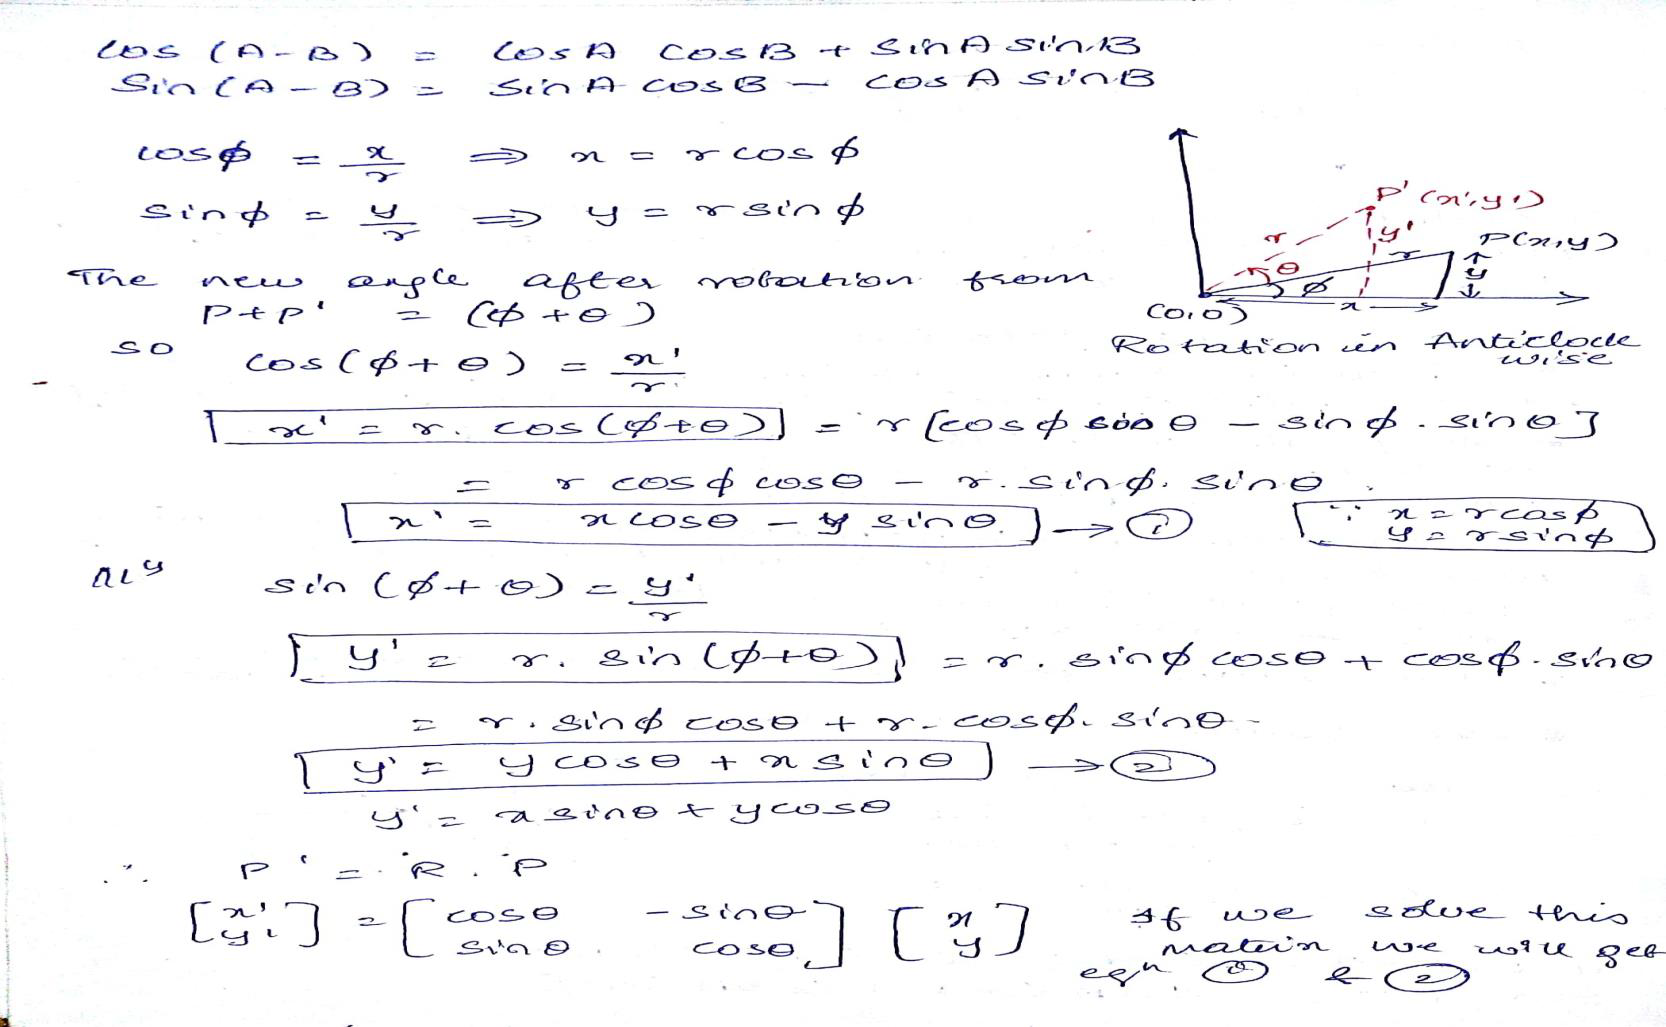 cos (A-B) = cosA cosB + sinA sinB
Sin (A-B) = sinA cosB - cosA sinB
cosϕ = x/r ⇒ x = r cosϕ
sinϕ = y/r ⇒ y = r sinϕ
P'(x',y')
r
y'
P(x,y)
r
θ
ϕ
y
x
(0,0)
Rotation in Anticlock
wise
The new angle after rotation from
P + P' = (ϕ+θ)
so cos(ϕ+θ) = x'/r
x' = r. cos(ϕ+θ) = r[cosϕ cosθ - sinϕ. sinθ]
= r cosϕ cosθ - r. sinϕ. sinθ
x' = x cosθ - y sinθ → ① [∵ x = r cosϕ
y = r sinϕ]
lly sin(ϕ+θ) = y'/r
y' = r. sin(ϕ+θ) = r. sinϕ cosθ + cosϕ. sinθ
= r. sinϕ cosθ + r. cosϕ. sinθ
y' = y cosθ + x sinθ → ②
y' = x sinθ + y cosθ
∴ P' = R . P
[x' y'] = [cosθ -sinθ sinθ cosθ] [x y] If we solve this
matrix we will get
eqn ① & ②